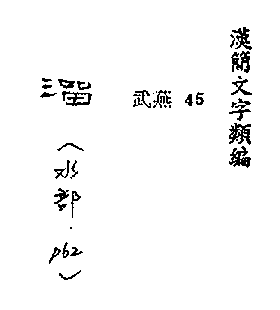 漢簡文字類編
武燕 45
溜
（水部．p62）